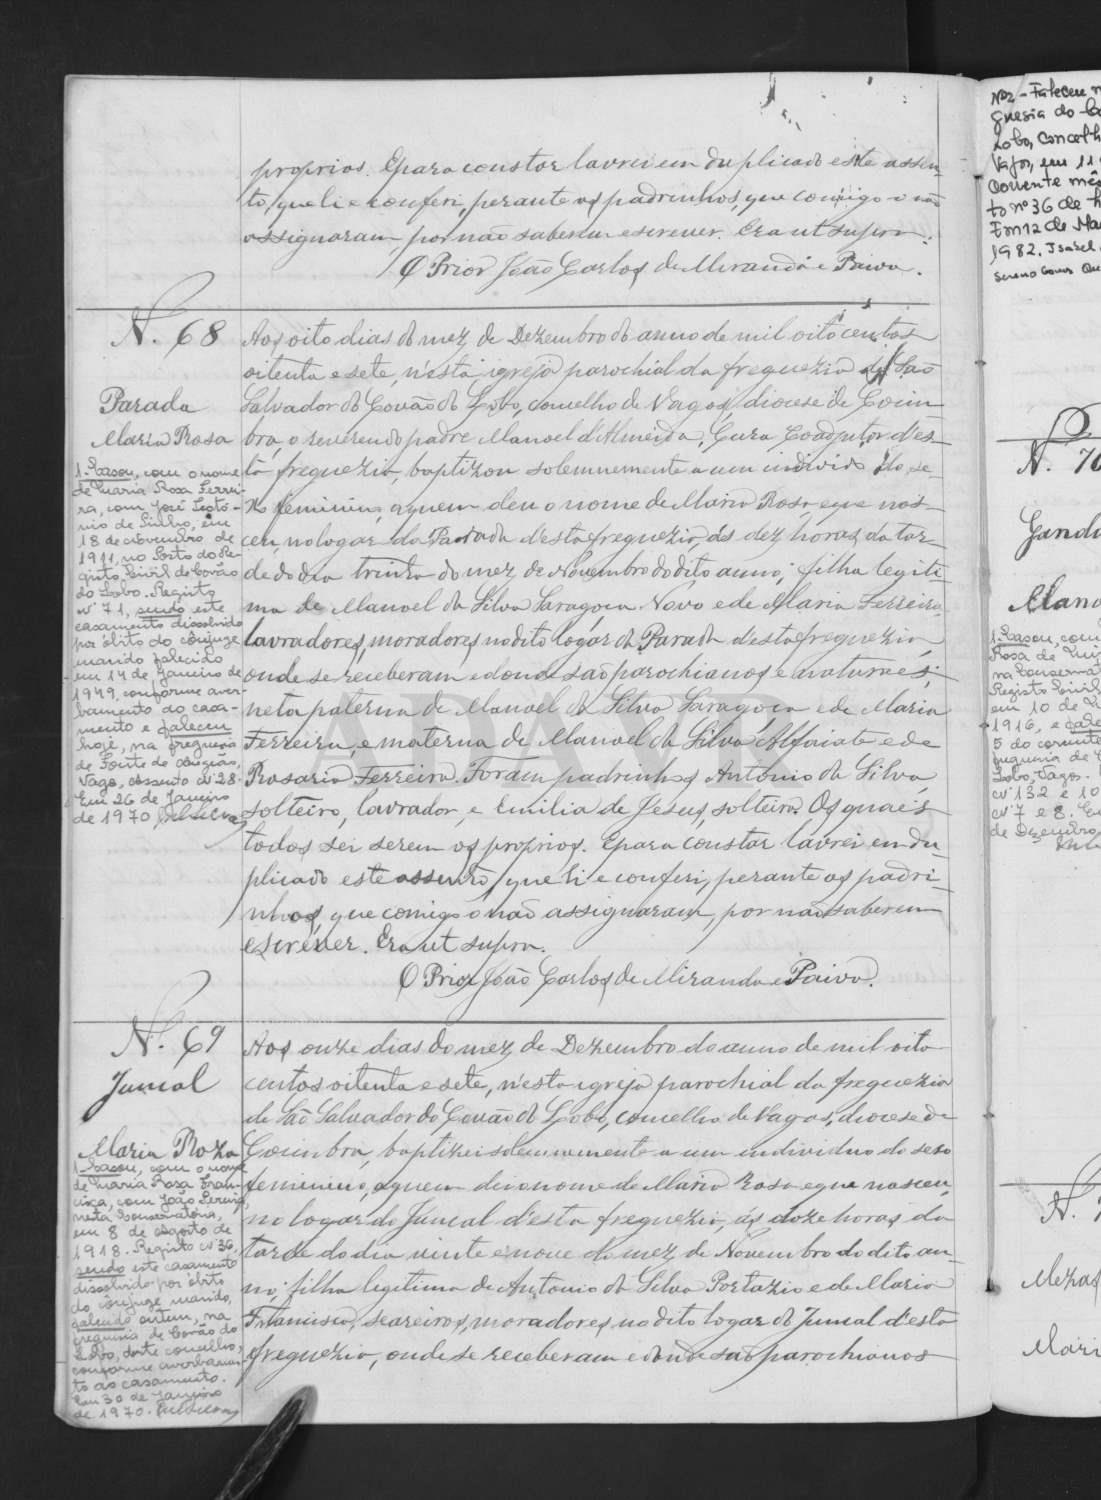 proprios. E para constar lavrei em duplicado este assen-
to, que li e conferi, perante os padrinhos, que comigo o não
assignaram, por não saberem escrever. Era ut supra.
O Prior João Carlos de Miranda e Paiva.
N. 68
Parada
Maria Rosa
1. Casou, com o nome
de Maria Rosa Ferrei-
ra, com José
de Pinho, em
18 de Novembro de
1911, no Posto do Re-
gisto Civil de Covão
do Lobo. Registo
nº 71, sendo este
casamento dissolvido
por óbito do cônjuge
marido falecido
em 14 de Janeiro de
1949, conforme aver-
bamento ao casa-
mento e faleceu
hoje, na freguesia
de Fonte de Angeão,
Vagos, Assento nº 28.
Em 26 de Janeiro
de 1970
Aos oito dias do mez de Dezembro do anno de mil oito centos
oitenta e sete, n'esta igreja parochial da freguezia de São
Salvador do Covão do Lobo, concelho de Vagos, diocese de Coim-
bra, o reverendo padre Manoel d'Almeida, Cura Coadjutor d'es-
ta freguezia, baptizou solemnemente a um individuo do se-
xo feminino, a quem deu o nome de Maria Rosa e que nas-
ceu, no logar da Parada d'esta freguezia, ás dez horas da tar-
de do dia trinta do mez de Novembro do dito anno; filha legiti-
ma de Manoel da Silva Saragoça Novo e de Maria Ferreira
lavradores, moradores no dito logar da Parada d'esta freguezia,
onde se receberam e donde são parochianos e naturaes;
neta paterna de Manoel da Silva Saragoça e de Maria
Ferreira, e materna de Manoel da Silva Alfaiate e de
Rosaria Ferreira. Foram padrinhos Antonio da Silva,
solteiro, lavrador, e Emilia de Jesus, solteira. Os quaes
todos sei serem os proprios. E para constar lavrei em du-
plicado este assento, que li e conferi, perante os padri-
nhos, que comigo o não assignaram, por não saberem
escrever. Era ut supra.
O Prior João Carlos de Miranda e Paiva.
N. 69
Juncal
Maria Roza
1. Casou, com o nome
de Maria Rosa Fran-
cisca, com João Pereira,
nesta Conservatória,
em 8 de Agosto de
1918. Registo nº 36,
sendo este casamento
dissolvido por óbito
do cônjuge marido,
falecido ontem, na
freguesia de Covão do
Lobo, deste concelho,
conforme averbamen-
to ao casamento.
Em 30 de Janeiro
de 1970.
Aos onze dias do mez de Dezembro do anno de mil oito
centos oitenta e sete, n'esta igreja parochial da freguezia
de São Salvador do Covão do Lobo, concelho de Vagos, diocese de
Coimbra, baptizei solemnemente a um individuo do sexo
feminino, a quem dei o nome de Maria Rosa e que nasceu,
no logar do Juncal d'esta freguezia, ás doze horas da
tarde do dia vinte e nove do mez de Novembro do dito an-
no; filha legitima de Antonio da Silva Portazio e de Maria
Francisca, seareiros, moradores no dito logar do Juncal d'esta
freguezia, onde se receberam e donde são parochianos
ADAVR
Nº2 - Faleceu n
guesia do Co
Lobo, concelh
Vagos, em 11
corrente mês
to nº 36 de h
Em 12 de Ma
1982. Isabel
N. 70
Gand
Mano
1. Casou, com
Rosa de
na Conserva
Registo Civil
em 10 de
1916, e fale
5 do corrente
freguesia de
Lobo, Vagos.
nº 132 e 10
nº 7 e 8. Em
de Dezembro
N. 7
Mezas
Mari